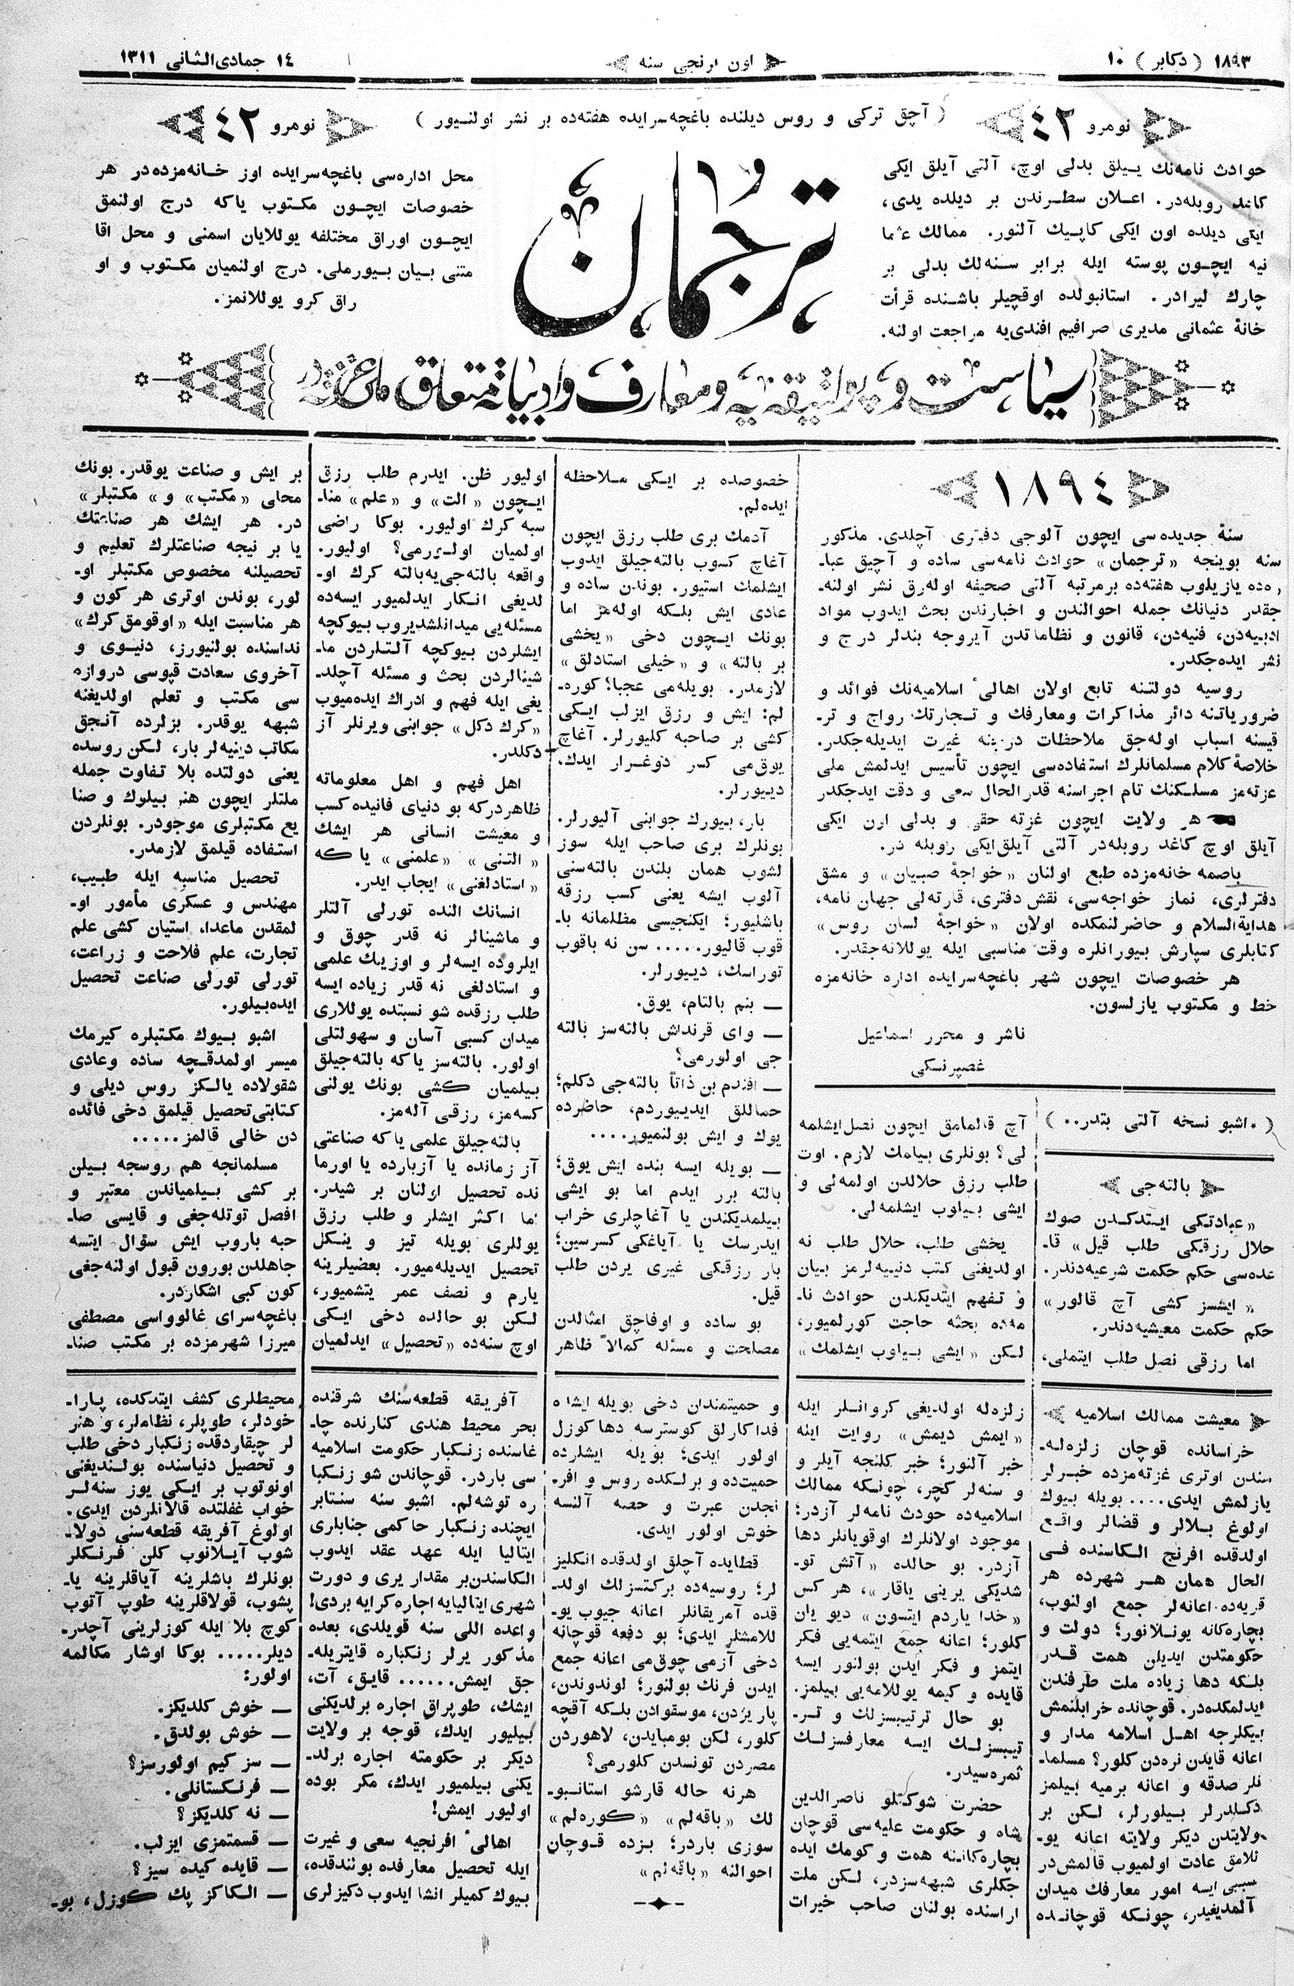 ١٨٩٣ ( دكابر ) ١٠
اون برنجى سنه
١٤ جمادى الثانى ١٣١١
نومرو ٤٢
( آچق تركى و روس ديلنده باغچه‌سرايده هفته‌ده بر نشر اولنيور )
نومرو ٤٢
حوادث نامه‌نك ييلق بدلى اوچ، آلتى آيلق ايكى
كاغد روبله‌در. اعلان سطرندن بر ديلده يدى،
ايكى ديلده اون ايكى كاپيك آلنور. ممالك عثما
نيه ايچون پوسته ايله برابر سنه‌لك بدلى بر
چارك ليرادر. استانبولده اوقچيلر باشنده قرأت
خانهٔ عثمانى مديرى صرافيم افندى‌يه مراجعت اولنه.
ترجمان
محل اداره‌سى باغچه‌سرايده اوز خانه‌مزده‌در هر
خصوصات ايچون مكتوب ياكه درج اولنمق
ايچون اوراق مختلفه يوللايان اسمنى و محل اقا
متنى بيان بيورملى. درج اولنميان مكتوب و او
راق كرو يوللانمز.
١٨٩٤
سنهٔ جديده‌سى ايچون آلوجى دفترى آچلدى. مذكور
سنه بوينجه «ترجمان» حوادث نامه‌سى ساده و آچيق عبا-
ره‌ده يازيلوب هفته‌ده برمرتبه آلتى صحيفه اوله‌رق نشر اولنه-
جقدر دنيانك جمله احوالندن و اخبارندن بحث ايدوب مواد
ادبيه‌دن، فنيه‌دن، قانون و نظاماتدن آيروجه بندلر درج و
نشر ايده‌جكدر.
روسيه دولتنه تابع اولان اهالئ اسلاميه‌نك فوائد و
ضرورياتنه دائر مذاكرات ومعارفك و تجارتك رواج و تر-
قيسنه اسباب اوله‌جق ملاحظات درجنه غيرت ايديله‌جكدر.
خلاصهٔ كلام مسلمانلرك استفاده‌سى ايچون تأسيس ايدلمش ملى
غزته‌مز مسلكنك تام اجراسنه قدر الحال سعى و دقت ايدجكدر
هر ولايت ايچون غزته حقى و بدلى اون ايكى
آيلق اوچ كاغد روبله‌در آلتى آيلق‌ايكى روبله در.
باصمه خانه‌مزده طبع اولنان «خواجهٔ صبيان» و مشق
دفترلرى، نماز خواجه‌سى، نقش دفترى، قارته‌لى جهان نامه،
هداية السلام و حاضرلنمكده اولان «خواجهٔ لسان روس»
كتابلرى سپارش بيورانلره وقت مناسبى ايله يوللانه‌جقدر.
هر خصوصات ايچون شهر باغچه‌سرايده اداره خانه‌مزه
خط و مكتوب يازلسون.
ناشر و محرر اسماعيل
غصپرنسكى
( ۰اشبو نسخه آلتى بتدر۰۰ )
بالته‌جى
«عبادتكى ايتدكدن صوك
حلال رزقكى طلب قيل» قا-
عده‌سى حكم حكمت شرعيه‌دندر.
«ايشسز كشى آچ قالور»
حكم حكمت معيشيه‌دندر.
اما رزقى نصل طلب ايتملى،
آچ قالمامق ايچون نصل ايشلمه
لى؟ بونلرى بيلمك لازم. اوت
طلب رزق حلالدن اولمه‌لى و
ايشى بيلوب ايشلمه‌لى.
يخشى طلب، حلال طلب نه
اولديغنى كتب دنييه‌لرمز بيان
و تفهم ايتديكندن حوادث نا-
مه‌ده بحثه حاجت كورلميور،
لكن «ايشى بيلوب ايشلمك»
خصوصده بر ايكى ملاحظه
ايده‌لم.
آدمك برى طلب رزق ايچون
آغاچ كسوب بالته‌جيلق ايدوب
ايشلمك استيور. بوندن ساده و
عادى ايش بلكه اوله‌مز اما
بونك ايچون دخى «يخشى
بر بالته» و «خيلى استادلق»
لازمدر. بويله‌مى عجبا؟ كوره-
لم: ايش و رزق ايزلب ايكى
كشى بر صاحبه كليورلر. آغاچ
يوق‌مى كسر دوغرار ايدك،
ديبورلر.
بار، بيورك جوابنى آليورلر.
بونلرك برى صاحب ايله سوز
لشوب همان بلندن بالته‌سنى
آلوب ايشه يعنى كسب رزقه
باشليور؛ ايكنجيسى مظلمانه با-
قوب قاليور..... سن نه باقوب
توراسك، ديبورلر.
— بنم بالتام، يوق.
— واى قرنداش بالته‌سز بالته
جى اولورمى؟
— افندم بن ذاتاً بالته‌جى دكلم؛
حماللق ايديبوردم، حاضرده
يوك و ايش بولنميور....
— بويله ايسه بنده ايش يوق؛
بالته برر ايدم اما بو ايشى
بيلمديكندن يا آغاچلرى خراب
ايدرسك يا آياغكى كسرسين؛
بار رزقكى غيرى يردن طلب
قيل.
بو ساده و اوفاچق امثالدن
مصلحت و مسئله كمالاً ظاهر
اوليور ظن. ايدرم طلب رزق
ايچون «الت» و «علم» منا-
سبه كرك اوليور. بوكا راضى
اولميان اولورمى؟ اوليور.
واقعه بالته‌جى‌يه‌بالته كرك او-
لديغى انكار ايدلميور ايسه‌ده
مسئله‌يى ميدانلشديروب بيوكچه
ايشلردن بيوكچه آلتلردن ما-
شينالردن بحث و مسئله آچلد-
يغى ايله فهم و ادراك ايده‌ميوب
«كرك دكل» جوابنى ويرنلر آز
دكلدر.
اهل فهم و اهل معلوماته
ظاهردركه بو دنياى فانيده كسب
و معيشت انسانى هر ايشك
«التنى» «علمنى» ياكه
«استادلغنى» ايجاب ايدر.
انسانك النده تورلى آلتلر
و ماشينالر نه قدر چوق و
ايلروده ايسه‌لر و اوزينك علمى
و استادلغى نه قدر زياده ايسه
طلب رزقده شو نسبتده يوللارى
ميدان كسبى آسان و سهولتلى
اولور. بالته‌سز ياكه بالته‌جيلق
بيلميان كشى بونك يولنى
كسه‌مز، رزقى آله‌مز.
بالته‌جيلق علمى ياكه صناعتى
آز زمانده يا آزبارده يا اورما
نده تحصيل اولنان بر شيدر.
اما اكثر ايشلر و طلب رزق
يوللرى بويله تيز و ينكل
تحصيل ايديله‌ميور. بعضيلرينه
يارم و نصف عمر يتشميور،
لكن بو حالده دخى ايكى
اوچ سنه‌ده «تحصيل» ايدلميان
بر ايش و صناعت يوقدر. بونك
محلى «مكتب» و «مكتبلر»
در. هر ايشك هر صناعتك
يا بر نيچه صناعتلرك تعليم و
تحصيلنه مخصوص مكتبلر او-
لور، بوندن اوترى هر كون و
هر مناسبت ايله «اوقومق كرك»
نداسنده بولنيورز، دنيوى و
آخروى سعادت قپوسى دروازه
سى مكتب و تعلم اولديغنه
شبهه يوقدر. بزلرده آنجق
مكاتب دينيه‌لر بار، لكن روسده
يعنى دولتده بلا تفاوت جمله
ملتلر ايچون هنر بيلوك و صنا
يع مكتبلرى موجودر. بونلردن
استفاده قيلمق لازمدر.
تحصيل مناسبه ايله طبيب،
مهندس و عسكرى مأمور او-
لمقدن ماعدا، استيان كشى علم
تجارت، علم فلاحت و زراعت،
تورلى تورلى صناعت تحصيل
ايده‌بيلور.
اشبو بيوك مكتبلره كيرمك
ميسر اولمدقچه ساده وعادى
شقولاده يالكز روس ديلى و
كتابتى‌تحصيل قيلمق دخى فائده
دن خالى قالمز.....
مسلمانجه هم روسجه بيلن
بر كشى بيلمياندن معتبر و
افصل توتله‌جغى و قايسى صا-
حبه باروب ايش سؤال ايتسه
جاهلدن بورون قبول اولنه‌جغى
كون كبى اشكاردر.
باغچه‌سراى غالوواسى مصطفى
ميرزا شهرمزده بر مكتب صنا-
معيشت ممالك اسلاميه
خراسانده قوچان زلزله-
سندن اوترى غزته‌مزده خبرلر
يازلمش ايدى.... بويله بيوك
اولوغ بلالر و قضالر واقع
اولدقده افرنج الكاسنده فى
الحال همان هر شهرده هر
قريه‌ده اعانه‌لر جمع اولنوب،
بچاره‌كانه يوللانور؛ دولت و
حكومتدن ايديلن همت قدر
بلكه دها زياده ملت طرفندن
ايدلمكده‌در. قوچانده خرابلنمش
بيكلرجه اهل اسلامه مدار و
اعانه قايدن نره‌دن كلور؟ مسلما-
نلر صدقه و اعانه برميه بيلمز
دكلدرلر بيلورلر، لكن بر
ولايتدن ديكر ولايته اعانه يو-
للامق عادت اولميوب قالمش‌در
سببى ايسه امور معارفك ميدان
آلمديغيدر، چونكه قوچانده
زلزله اولديغى كروانلر ايله
«ايمش ديمش» روايت اينه
خبر آلنور؛ خبر كلنجه آيلر و
و سنه‌لر كچر، چونكه ممالك
اسلاميه‌ده حودث نامه‌لر آزدر؛
موجود اولانلرك اوقويانلر دها
آزدر. بو حالده «آتش تو-
شديكى يرينى ياقار»، هر كس
«خدا ياردم ايتسون» ديو يان
كلور؛ اعانه جمع ايتمه‌يى فكر
ايتمز و فكر ايدن بولنور ايسه
قايده و كيمه يوللامه‌يى بيلمز.
بو حال ترتيبسزلك و تر-
تيبسزلك ايسه معارفسزلك
ثمره‌سيدر.
حضرت شوكتلو ناصرالدين
شاه و حكومت عليه‌سى قوچان
بچاره‌كانه همت و كومك ايده
جكلرى شبهه‌سزدر، لكن ملت
اراسنده بولنان صاحب خيرات
و حميتمندان دخى بويله ايشده
فداكارلق كوسترسه دها كوزل
اولور ايدى؛ بويله ايشلرده
حميتده و برلكده روس و افر-
انجدن عبرت و حصه آلنسه
خوش اولور ايدى.
قطايده آچلق اولدقده انكليز
لر؛ روسيه‌ده بركتسزلك اولد-
قده آمريقانلر اعانه جيوب يو-
للامشلر ايدى؛ بو دفعه قوچانه
دخى آزمى چوق‌مى اعانه جمع
ايدن فرنك بولنور؛ لوندوندن،
پاريزدن، موسقوادن بلكه آقچه
كلور، لكن بومبايدن، لاهوردن
مصردن تونسدن كلورمى؟
هرنه حاله قارشو استانبو-
لك «باقه‌لم» «كوره‌لم»
سوزى باردر؛ بزده قوچان
احوالنه «باقه‌لم»
آفريقه قطعه‌سنك شرقنده
بحر محيط هندى كنارنده چا-
غاسنده زنكبار حكومت اسلاميه
سى باردر. قوچاندن شو زنكبا
ره توشه‌لم. اشبو سنه سنتابر
ايچنده زنكبار حاكمى جنابلرى
ايتاليا ايله عهد عقد ايدوب
الكاسندن‌بر مقدار يرى و دورت
شهرى ايتاليايه اجاره كرايه بردى!
واعده اللى سنه قويلدى، بعده
مذكور يرلر زنكباره قايتريله-
جق ايمش...... قايق، آت،
ايشك، طوپراق اجاره برلديكنى
بيليور ايدك، قوجه بر ولايت
ديكر بر حكومته اجاره برلد-
يكنى بيلميور ايدك، مكر بوده
اوليور ايمش!
اهالئ افرنجيه سعى و غيرت
ايله تحصيل معارفده بولندقده،
بيوك كميلر انشا ايدوب دكيزلرى
محيطلرى كشف ايتدكده، پارا-
خودلر، طوپلر، نظاملر، و هنر
لر چيقاردقده زنكبار دخى طلب
و تحصيل دنياسنده بولنديغنى
اونوتوب بر ايكى يوز سنه‌لر
خواب غفلتده قالانلردن ايدى.
اولوغ آفريقه قطعه‌سنى دولا-
شوب آيلانوب كلن فرنكلر
بونلرك باشلرينه آياقلرينه يا-
پشوب، قولاقلرينه طوپ آتوب
كوچ بلا ايله كوزلرينى آچدر-
ديلر..... بوكا اوشار مكالمه
اولور:
— خوش كلديكز.
— خوش بولدق.
— سز كيم اولورسز؟
— فرنكستانلى.
— نه كلديكز؟
— قسمتمزى ايزلب.
— قايده كيده سيز؟
— الكاكز پك كوزل، بو-